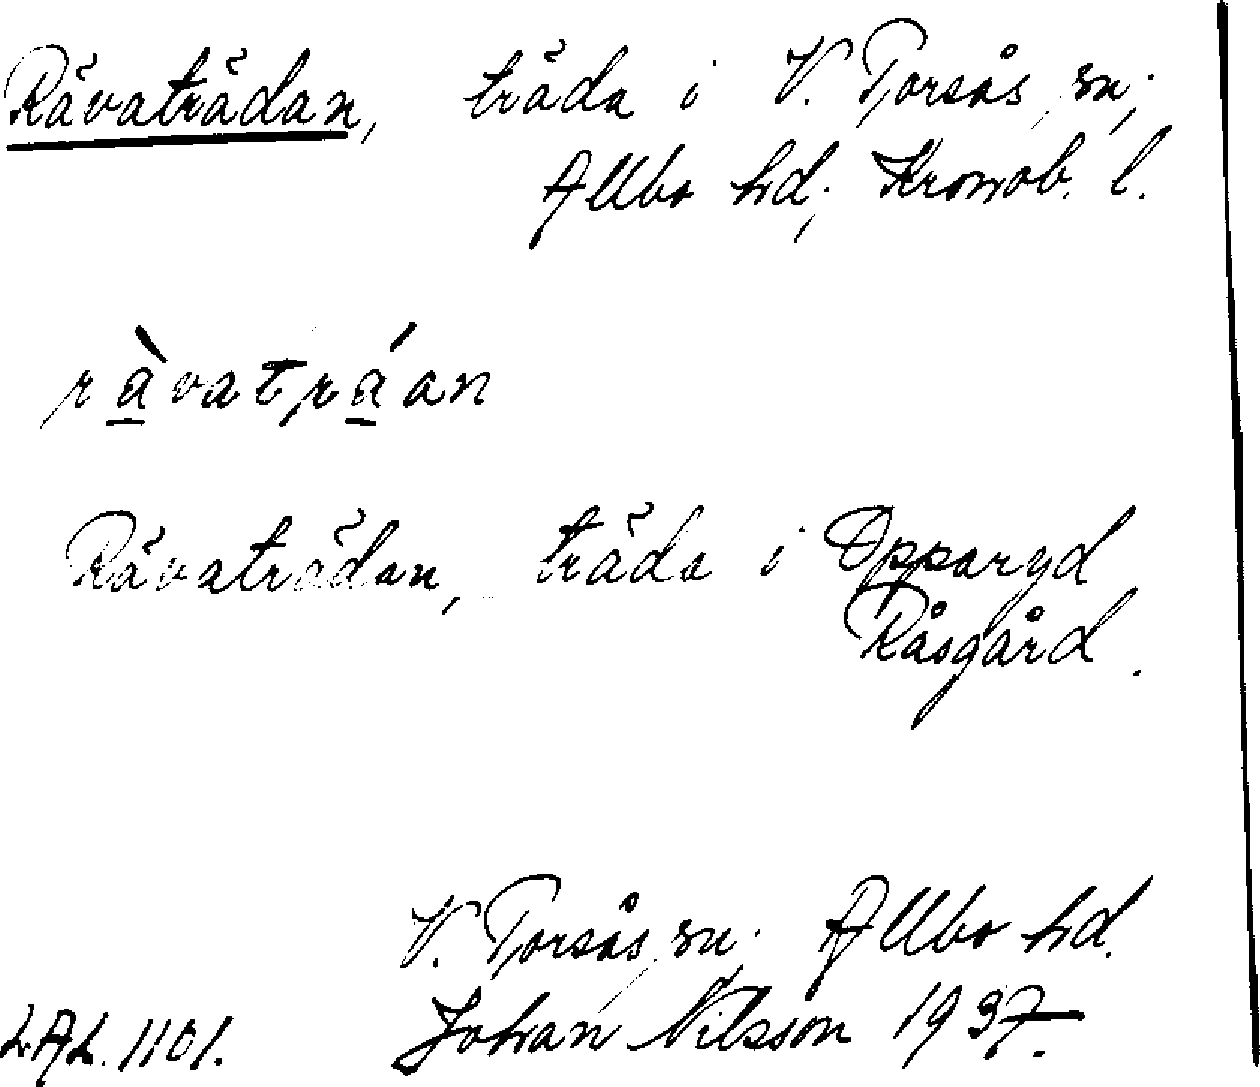 Råvaträdan, träda i V. Torsås sn;
Allbo hd; Kronob. l.
ràvatráan
Råvaträdan, träda i Opparyd
Råsgård.
V. Torsås sn; Allbo hd.
LAL. 1101. Johan Nilsson 1937.